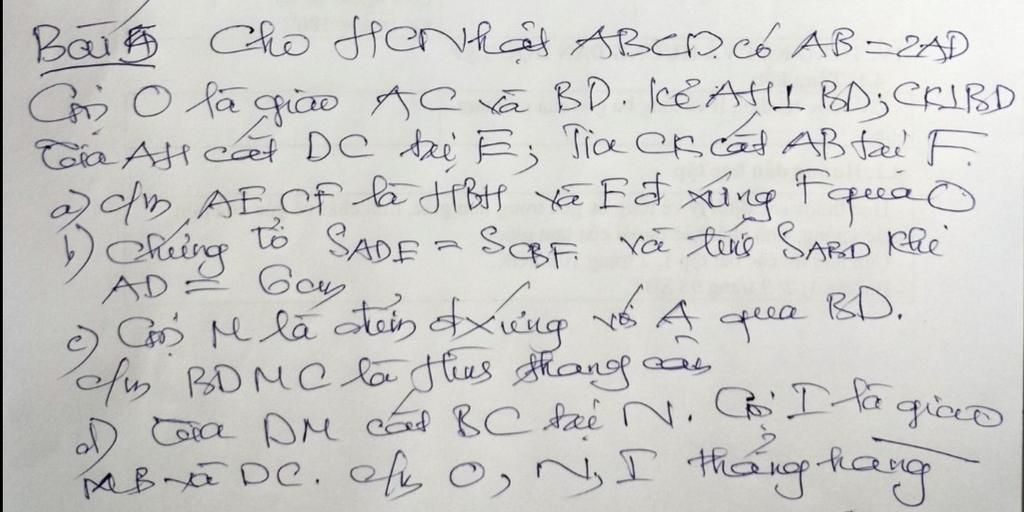 Bài 5 Cho HCNhật ABCD. có AB = 2AD
Gọi O là giao AC và BD. Kẻ AH⊥BD; CK⊥BD
Tia AH cắt DC tại E; Tia CK cắt AB tại F.
a) c/m AECF là HBH và E đ xứng F qua O
b) Chứng tỏ S_ADE = S_CBF. và tính S_ABD khi
AD = 6cm
c) Gọi M là điểm đ xứng với A qua BD.
c/m BDMC là hình thang cân
d) Tia DM cắt BC tại N. Gọi I là giao
MB và DC. c/m O, N, I thẳng hàng